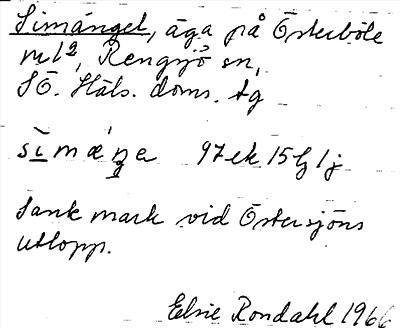 Simängel, äga på Österböle
ml 2, Rengsjö sn,
SÖ. Häls. doms. tg
97 ek 15 G 1 j
Sank mark vid Östersjöns
utlopp.
Elsie Rondahl 1966